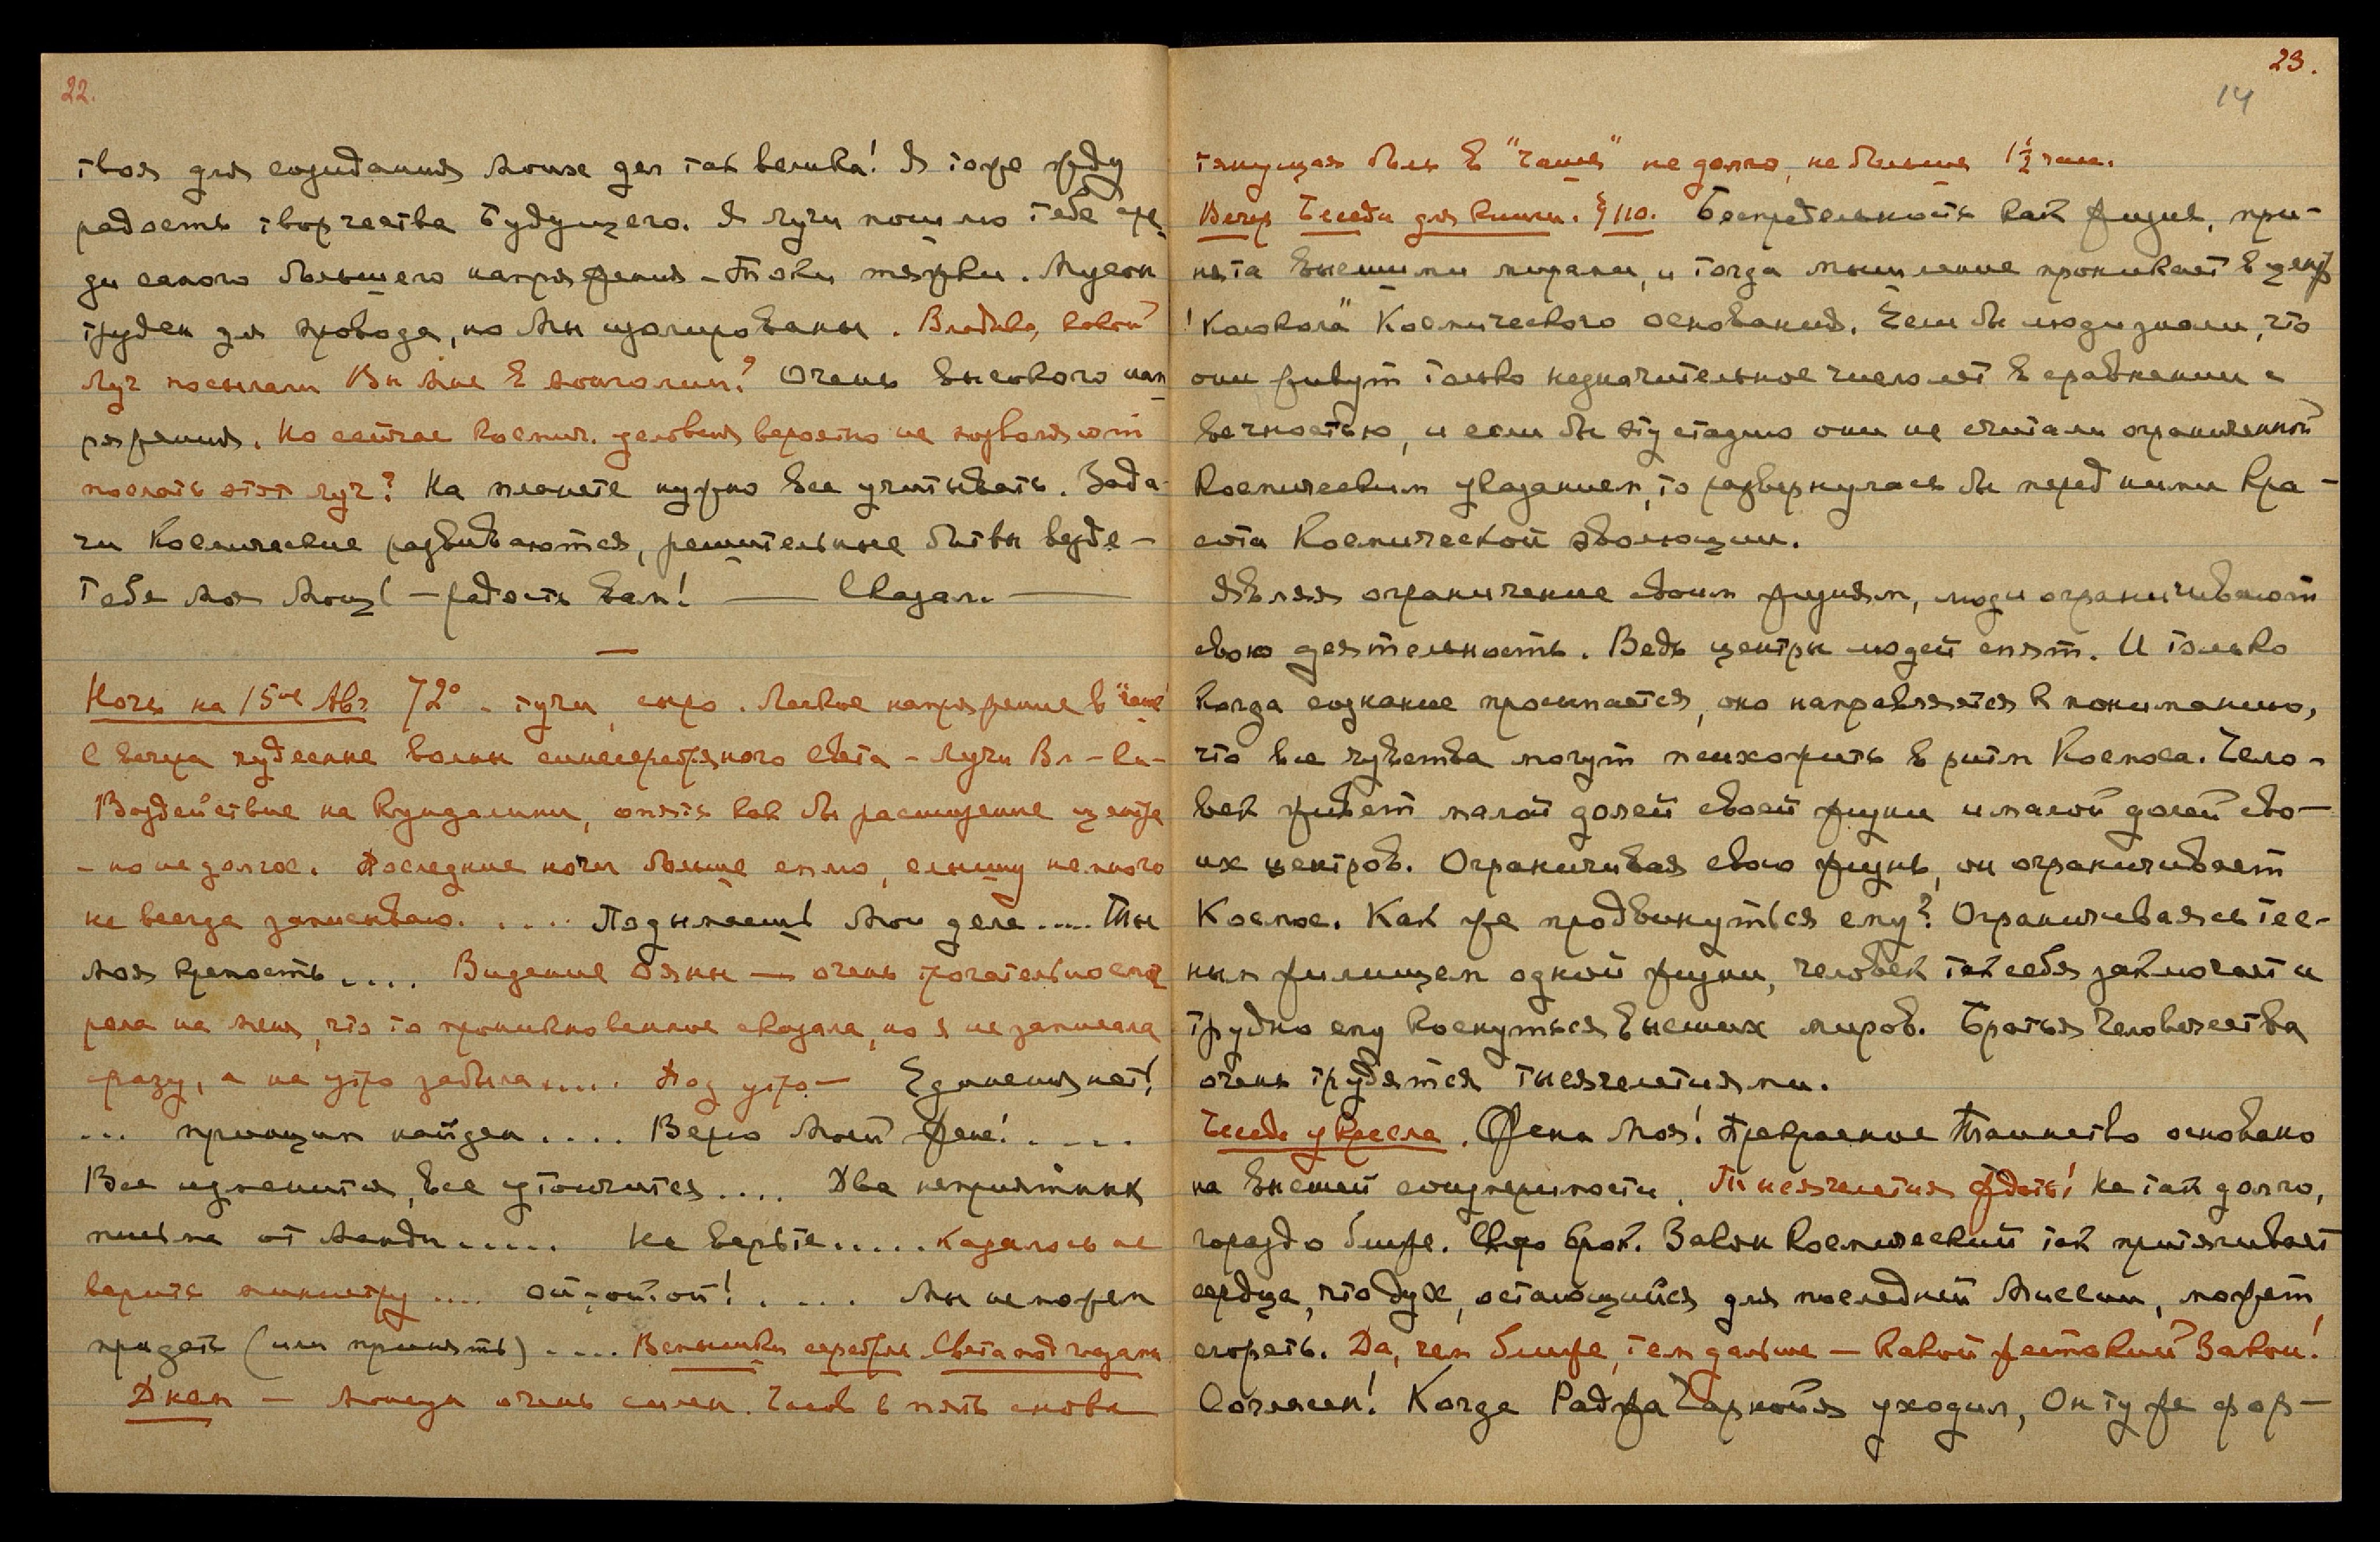 22.
твоя для созидания Моих дел так велика! Я тоже жду
радость творчества Будущего. Я лучи пошлю тебе сре-
ди самого большего напряжения – Токи тяжки. Мусон
труден для провода, но Мы изолированы. Владыка, какой
Луч посылали Вы мне в Монголии? Очень высокого нап
ряжения. Но сейчас космич. условия вероятно не позволяют
послать этот луч? На планете нужно все учитывать. Зада-
чи Космические развиваются, решительные битвы везде –
Тебе моя Мощь – радость вам! — Сказал. —
Ночь на 15ое Авг 72° – тучи, сыро. Легкое напряжение в "чаше"
С вечера чудесные волны синесеребряного света – Лучи Вл-ки –
Воздействие на кундалини, опять как бы расширение центра
– но не долгое. Последние ночи больше сплю, слышу немного
не всегда записываю. .... Подымаешь Мои дела .... Ты
моя крепость .... Видение Ояны — очень трогательно смот
рела на меня, что то проникновенное сказала, но я не записала
сразу, а на утро забыла .... Под утро – Единения нет!
... принцип найден .... Верю Моей жене! ....
Все изменится, все утончится .... Два неприятных
письма от Манди ..... Не верьте ..... казалось не
верить министру .... ой-ой-ой! .... Мы не можем
предать (или принять) .... Вспышки серебрн. Света под глазами
Днем – Монсун очень силен. Часов в пять снова
23.
14
тянущая боль в "чаше" не долго, не больше 1½ час.
Вечер Беседа для книги. § 110. Беспредельность как жизнь, при-
нята высшими мирами, и тогда мышление проникает в центр
"Колокола" Космического основания. Если бы люди знали, что
они живут только незначительное число лет в сравнении с
вечностью, и если бы эту стадию они не считали ограниченной
Космическим указанием, то развернулась бы перед ними кра-
сота Космической эволюции.
Являя ограничение своим жизням, люди ограничивают
свою деятельность. Ведь центры людей спят. И только
когда сознание просыпается, оно направляется к пониманию,
что все чувства могут психожить в ритм Космоса. Чело-
век живет малой долей своей жизни и малой долей сво-
их центров. Ограничивая свою жизнь, он ограничивает
Космос. Как же продвинуться ему? Ограничиваясь тес-
ным жилищем одной жизни, человек так себя заключает и
трудно ему коснуться высших миров. Братья Человечества
очень трудятся тысячелетиями.
Беседа у кресла. Жена Моя! Прекрасное Таинство основано
на высшей соизмеримости. Тысячелетия ждать! Не так долго,
гораздо ближе. Скоро срок. Закон Космический так притягивает
сердца, что дух, остающийся для последней Миссии, может
сгореть. Да, чем ближе, тем дальше – какой жестокий Закон!
Согласен! Когда Раджа Чарнойя уходил, Он ту же фор-